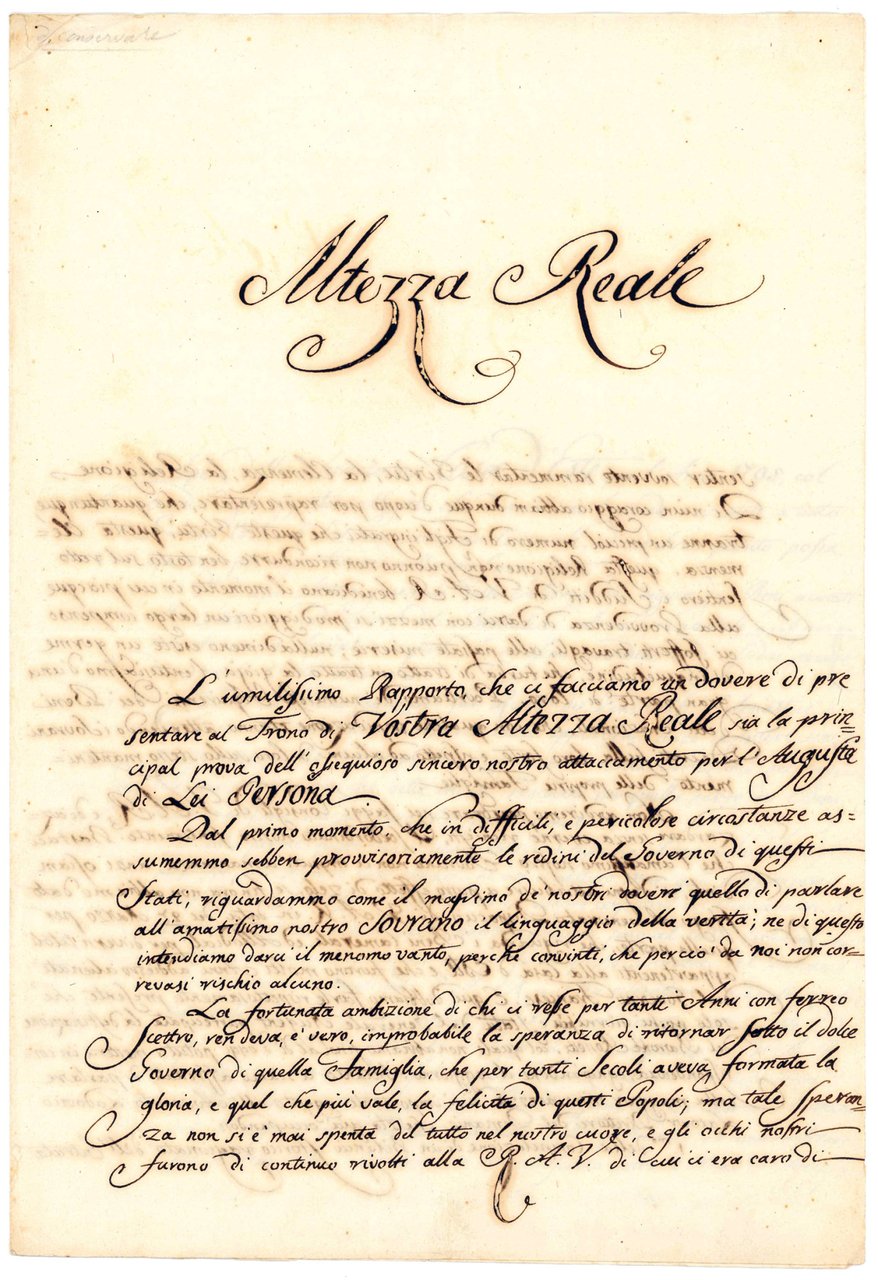 conservare
Altezza Reale
L'umilissimo Rapporto, che ci facciamo un dovere di pre
sentare al Trono di Vostra Altezza Reale sia la prin=
cipal prova dell'ossequioso sincero nostro attaccamento per l'Augusta
di Lei Persona.
Dal primo momento, che in difficili, e pericolose circostanze as=
sumemmo sebben provvisoriamente le redini del Governo di questi
Stati, riguardammo come il massimo de' nostri doveri quello di parlare
all'amatissimo nostro Sovrano il linguaggio della verità; ne di questo
intendiamo darci il menomo vanto, perchè convinti, che perciò da noi non cor=
revasi rischio alcuno.
La fortunata ambizione di chi ci resse per tanti Anni con ferreo
Scettro, rendeva, è vero, improbabile la speranza di ritornar sotto il dolce
Governo di quella Famiglia, che per tanti Secoli aveva formata la
gloria, e quel che più vale, la felicità di questi Popoli; ma tale speran=
za non si è mai spenta del tutto nel nostro cuore, e gli occhi nostri
furono di continuo rivolti alla R. A. V. di cui ci era caro di